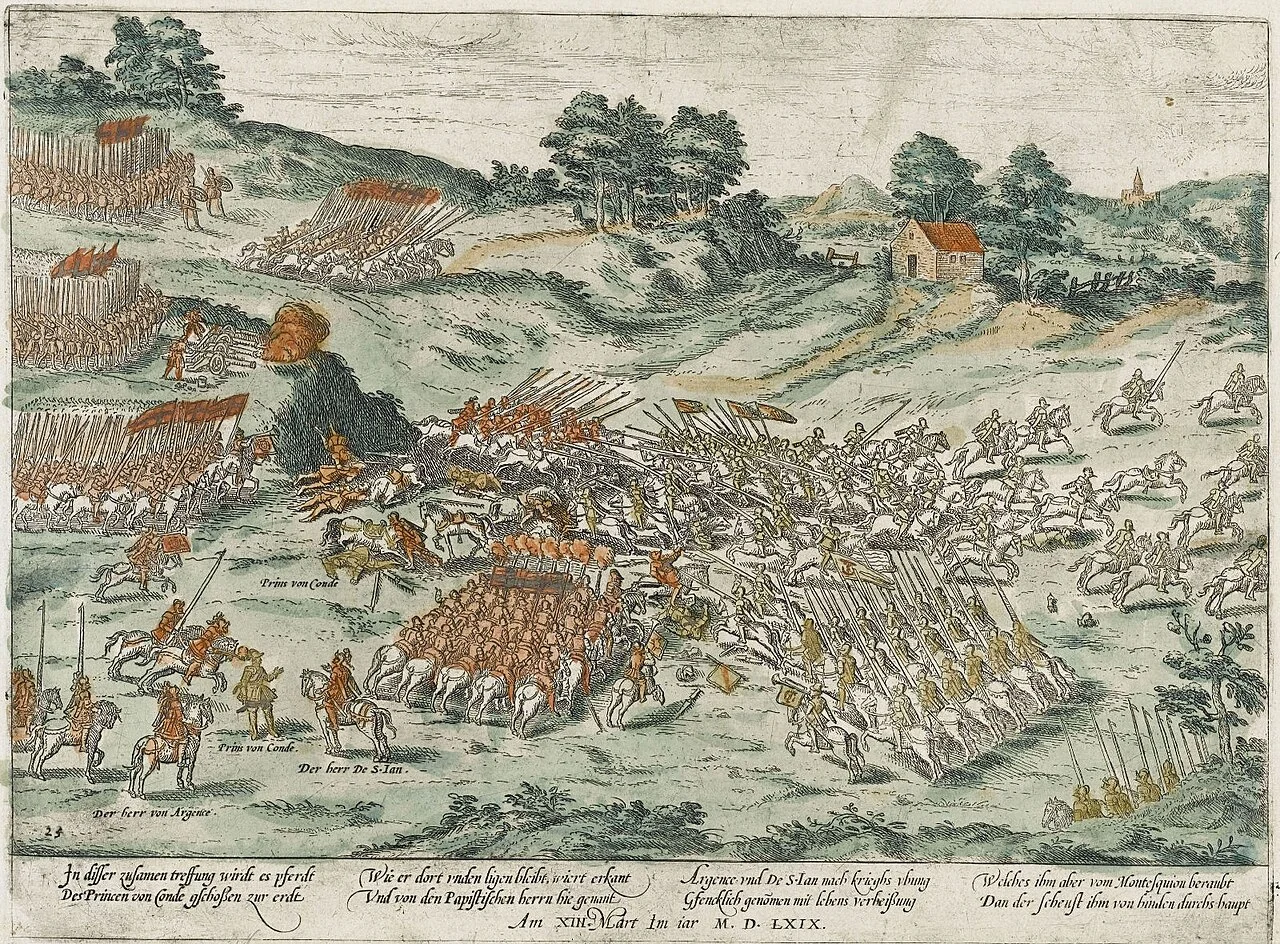 Prins von Conde
Prins von Conde.
Der herr De S. Ian.
Der herr von Argence.
25
In disser zusamen treffung wirdt es pferdt
Des Princen von Conde gschoßen zur erdt
Wie er dort vnden ligen bleibt, wiert erkant
Vnd von den Papistischen herrn hie genant
Argence vnd De S. Ian nach krieghs vbung
Gfencklich genomen mit lebens verheißung
Welches ihm aber vom Montesquiou beraubt
Dan der scheust ihm von hinden durchs haupt
Am XIII. Mart Im iar M. D. LXIX.